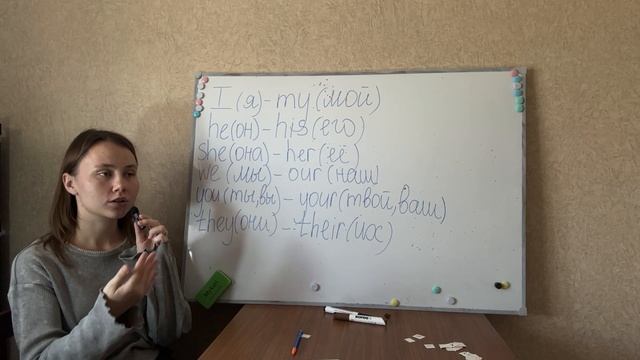 I (я) - my (мой)
he (он) - his (его)
she (она) - her (её)
we (мы) - our (наш)
you (ты, вы) - your (твой, ваш)
they (они) - their (их)